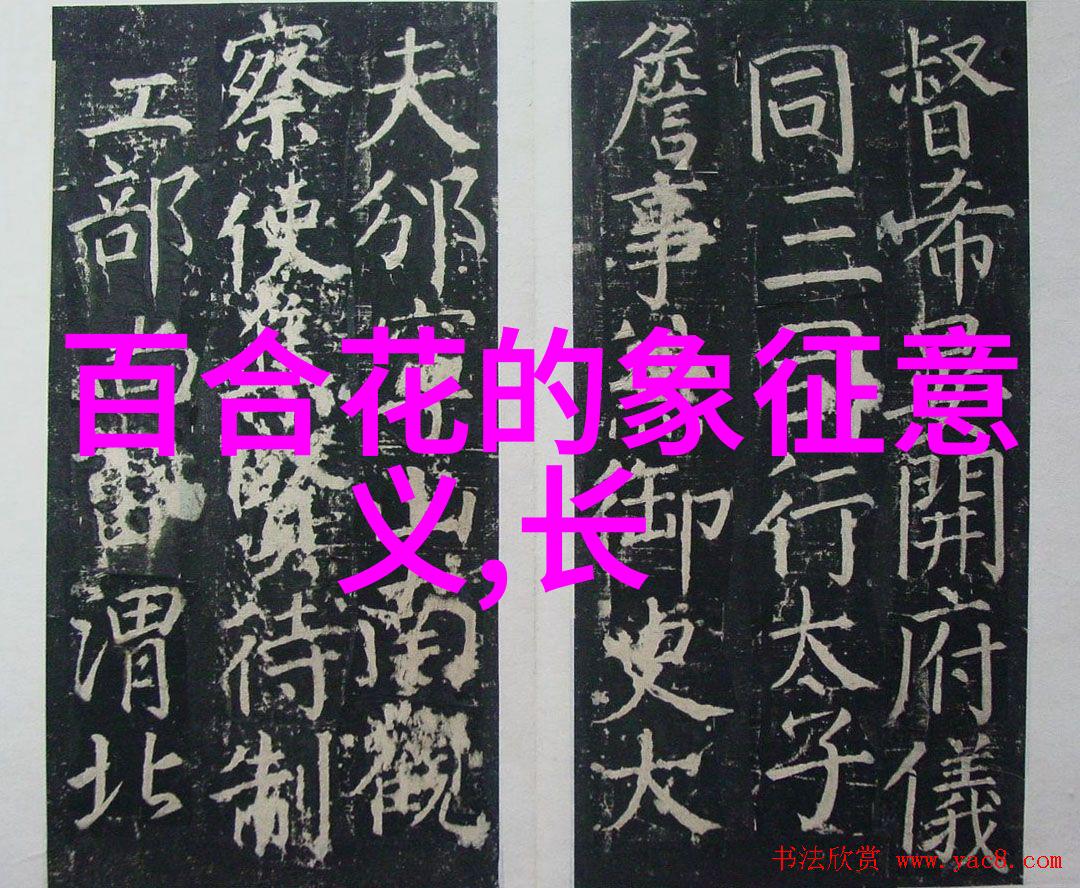 督希開府儀
同三司行太子
詹事兼御史大
夫邠寧山南觀
察使賢待制
工部尚書渭北
百合花的象征意
义,长
书法欣赏 www.yac8.com